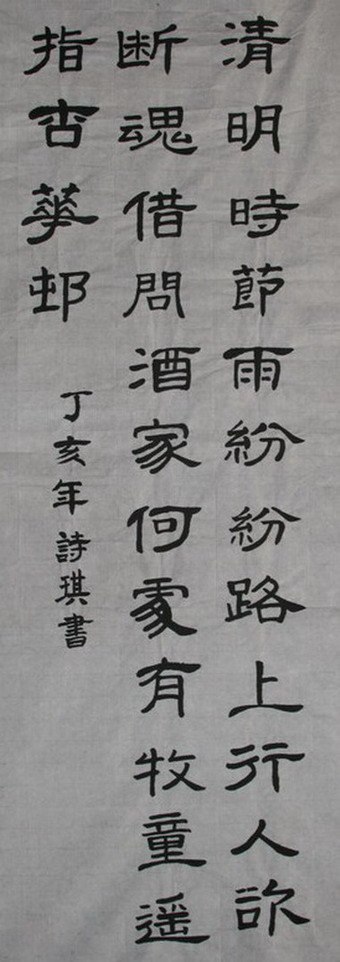 清明時節雨紛紛路上行人欲
断魂借問酒家何處有牧童遥
指杏華邨
丁亥年詩琪書